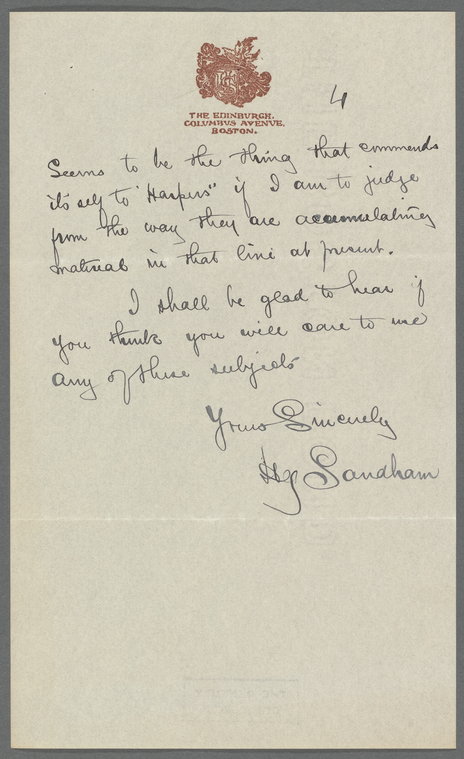 THE EDINBURGH.
COLUMBUS AVENUE.
BOSTON.
4
Seems to be the thing that commends
its self to "Harpers" if I am to judge
from the way they are accumulating
material in that line at present.
I shall be glad to hear if
you think you will care to use
any of these subjects
Yours Sincerely
Hy Sandham